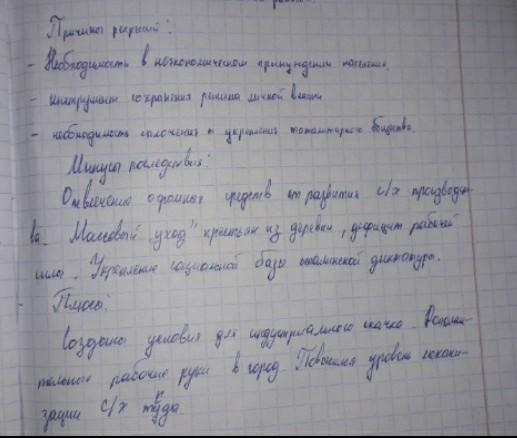 Причины репрессий:
- Необходимость в неэкономическом принуждении населения.
- инструмент сохранения режима личной власти
- необходимость сплочения и укрепления тоталитарного общества.
Минусы последствия:
Отвлечение огромных средств от развития с/х производст-
ва. Массовый "уход" крестьян из деревни, дефицит рабочей
силы. Укрепление социальной базы сталинской диктатуры.
Плюсы:
Созданы условия для индустриального скачка. Дополни-
тельные рабочие руки в город Повысился уровень механи-
зации с/х труда